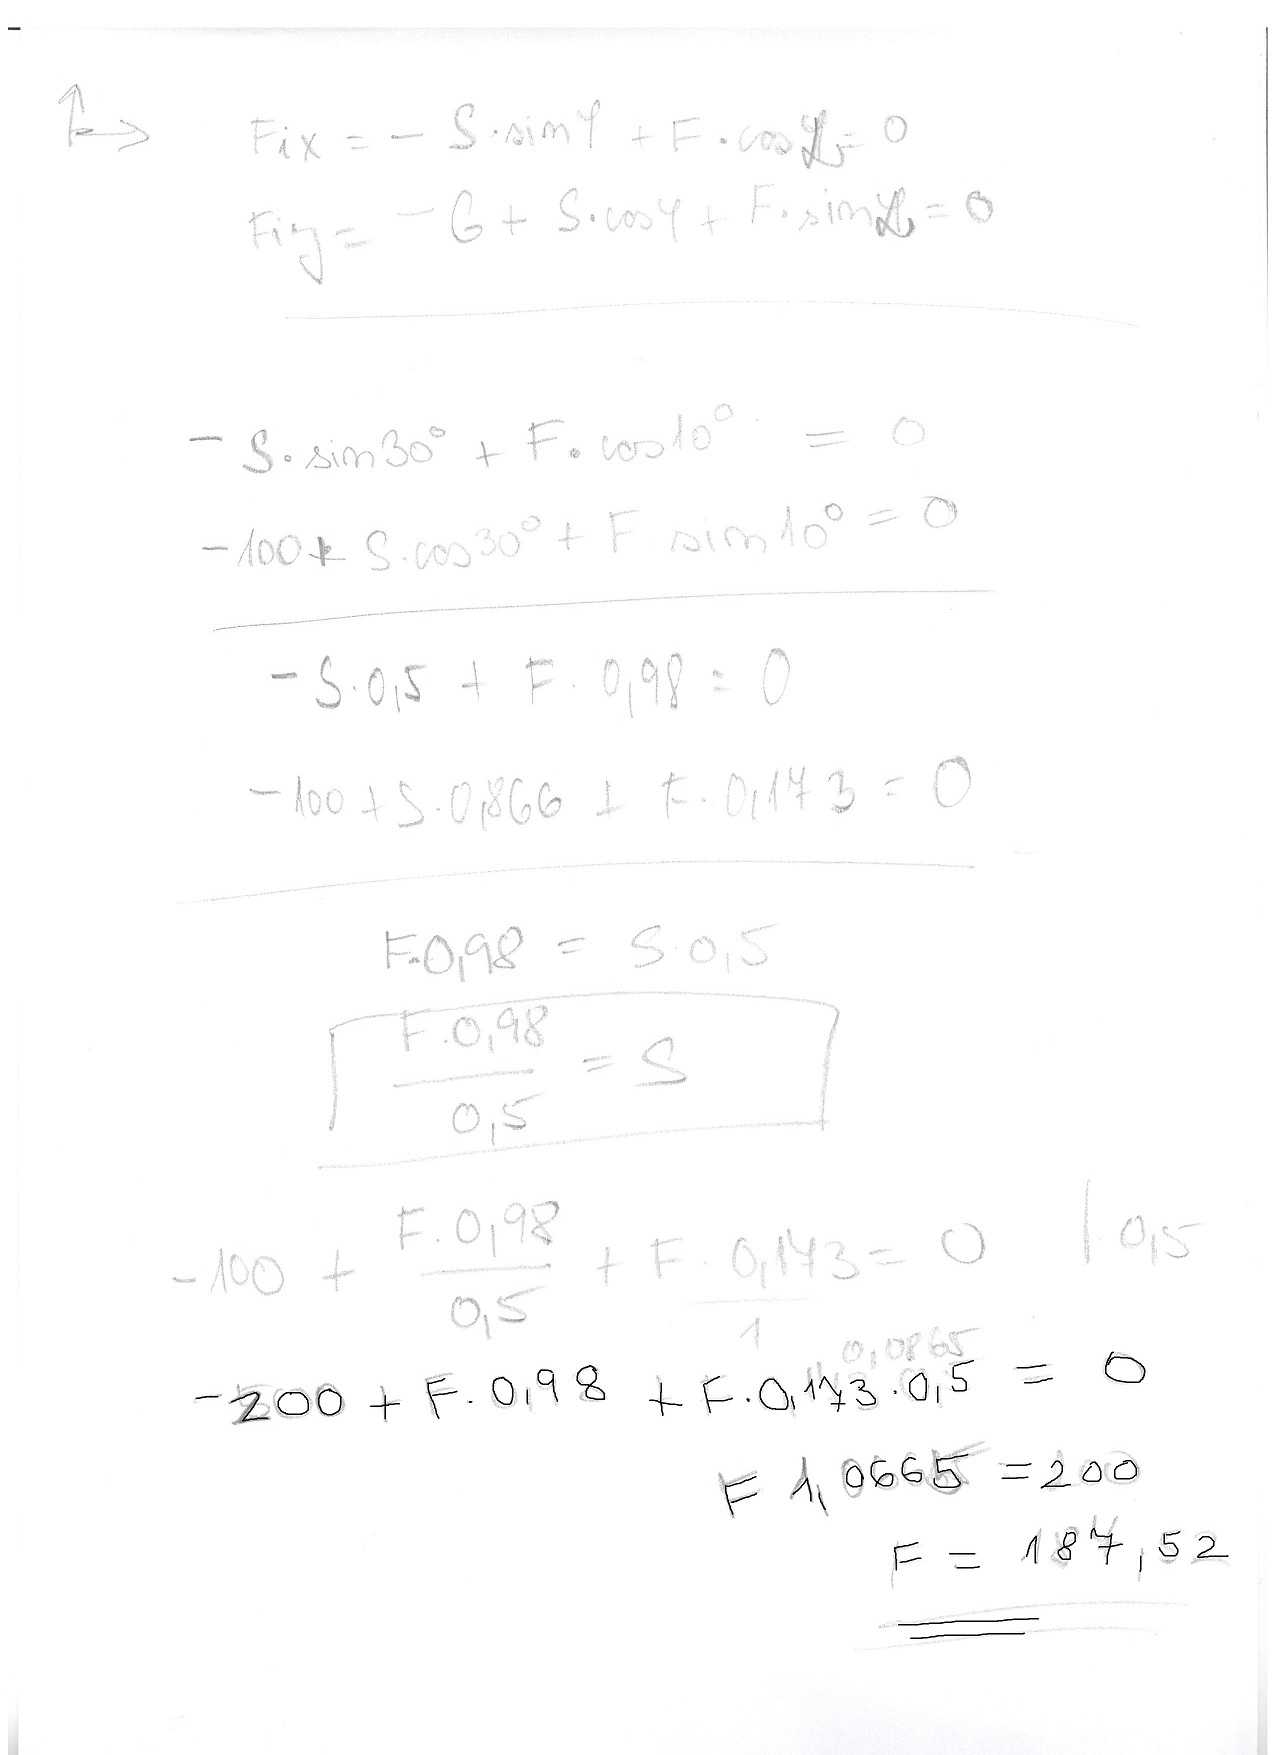 Fix = - S·sinφ + F·cosα = 0
Fiy = - G + S·cosφ + F·sinα = 0
- S·sin30° + F·cos10° = 0
-100 + S·cos30° + F sin10° = 0
- S·0,5 + F·0,98 = 0
-100 + S·0,866 + F·0,173 = 0
F·0,98 = S·0,5
F·0,98 / 0,5 = S
-100 + F·0,98 / 0,5 + F·0,173 / 1 = 0 |·0,5
0,0865
-200 + F·0,98 + F·0,173·0,5 = 0
F 1,0665 = 200
F = 187,52